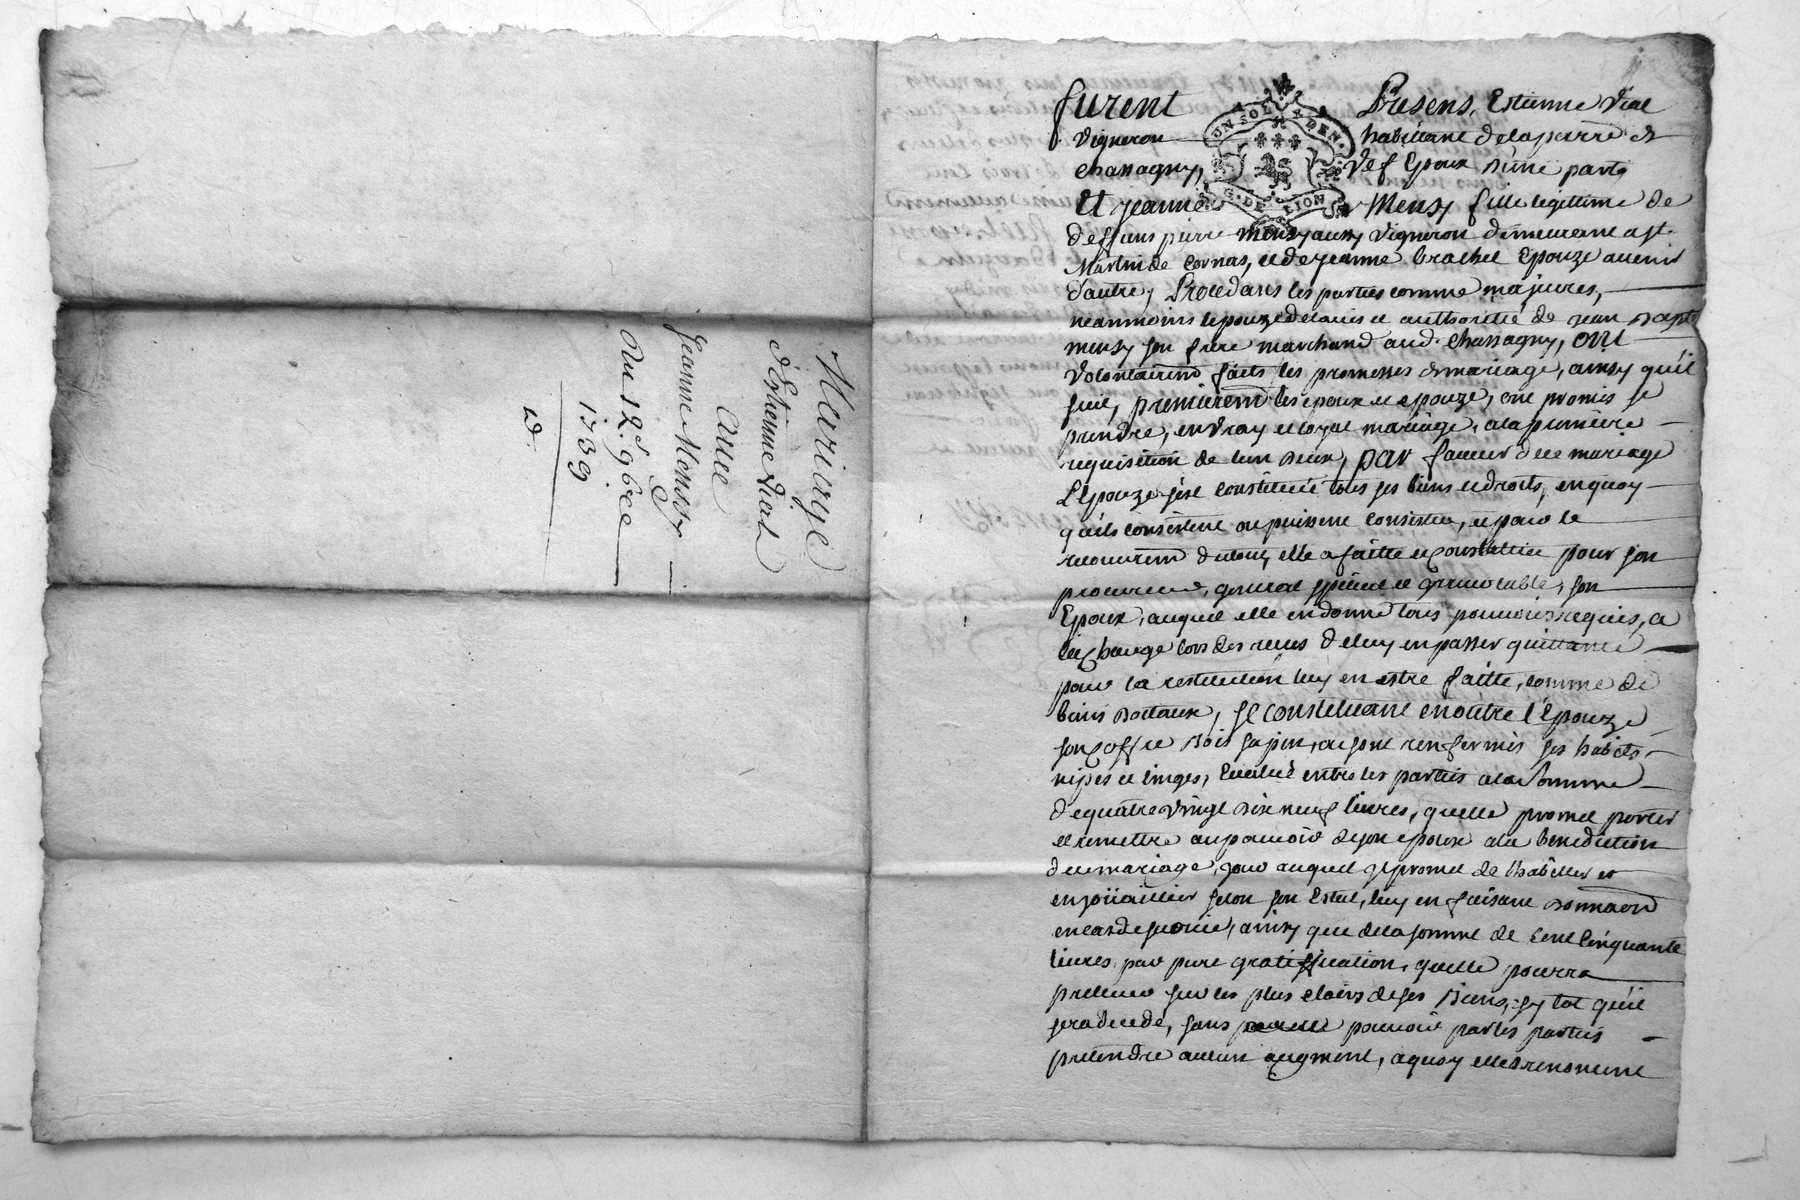 Mariage
d'Estienne Vial
avec
Jeanne Mensy
Du 12e 9bre
1739
furent Presens, Estienne Vial
UN SOL 4 DEN.
G. DE LION
Vigneron habittant de la parre de
Chassagny, Vef Epoux d'une part
Et jeanne Mensy fille legittime de
deffunt pierre Mensy aussy Vigneron demeurant a st
Martin de Cornas, et de jeanne brachet Epouze avenir
d'autre, Procedans les parties comme majeures,
neanmoins lepouze de lavis et authoritté de jean Bapte
mensy son frere marchand aud. Chassagny, ont
Volontairemt faits les promesses de mariage, ainsy qu'il
suit, premieremt les epoux et epouze, ont promis se
prendre, en Vray et loyal mariage, a la premiere
requisition de lun deux, par faveur du et mariage
L'Epouze s'est constitué tous ses biens et droits, en quoy
qu'ils consistent ou puissent consister, et pour le
recouvremt du tout, elle a faitte et constituée pour son
procureur, general special et irrevocable, son
Epoux, auquel elle en donne tous pouvoirs requis, a
la charge lors des recus de luy en passer quittance
pour la restitution luy en estre faitte, comme de
biens dottaux, se constituant en outre l'Epouze
son coffre bois sapin, ou sont renfermés ses habits
nipes et linges, Evalué entre les parties a la somme
de quatre Vingt dix neuf livres, quelle promet porter
et remettre au pouvoir de son epoux a la benediction
du mariage, jour auquel il promet de l'habiller et
enjoüailler selon son Estat, luy en faisant donnaon
en cas de survie, ainsy que de la somme de Cent Cinquante
livres par pure gratiffication, quelle pourra
prelever sur les plus clairs de ses Biens, sy tot qu'il
sera decedé, sans pouvoir par les parties
pretendre aucun augment, a quoy elles renoncent